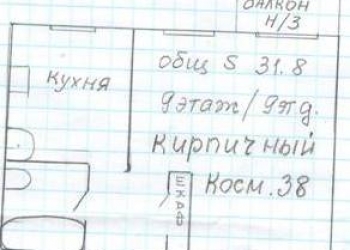 БАЛКОН
Н/З
общ S 31.8
кухня
9этаж/9эт.д.
кирпичный
Косм. 38
ШКАФ